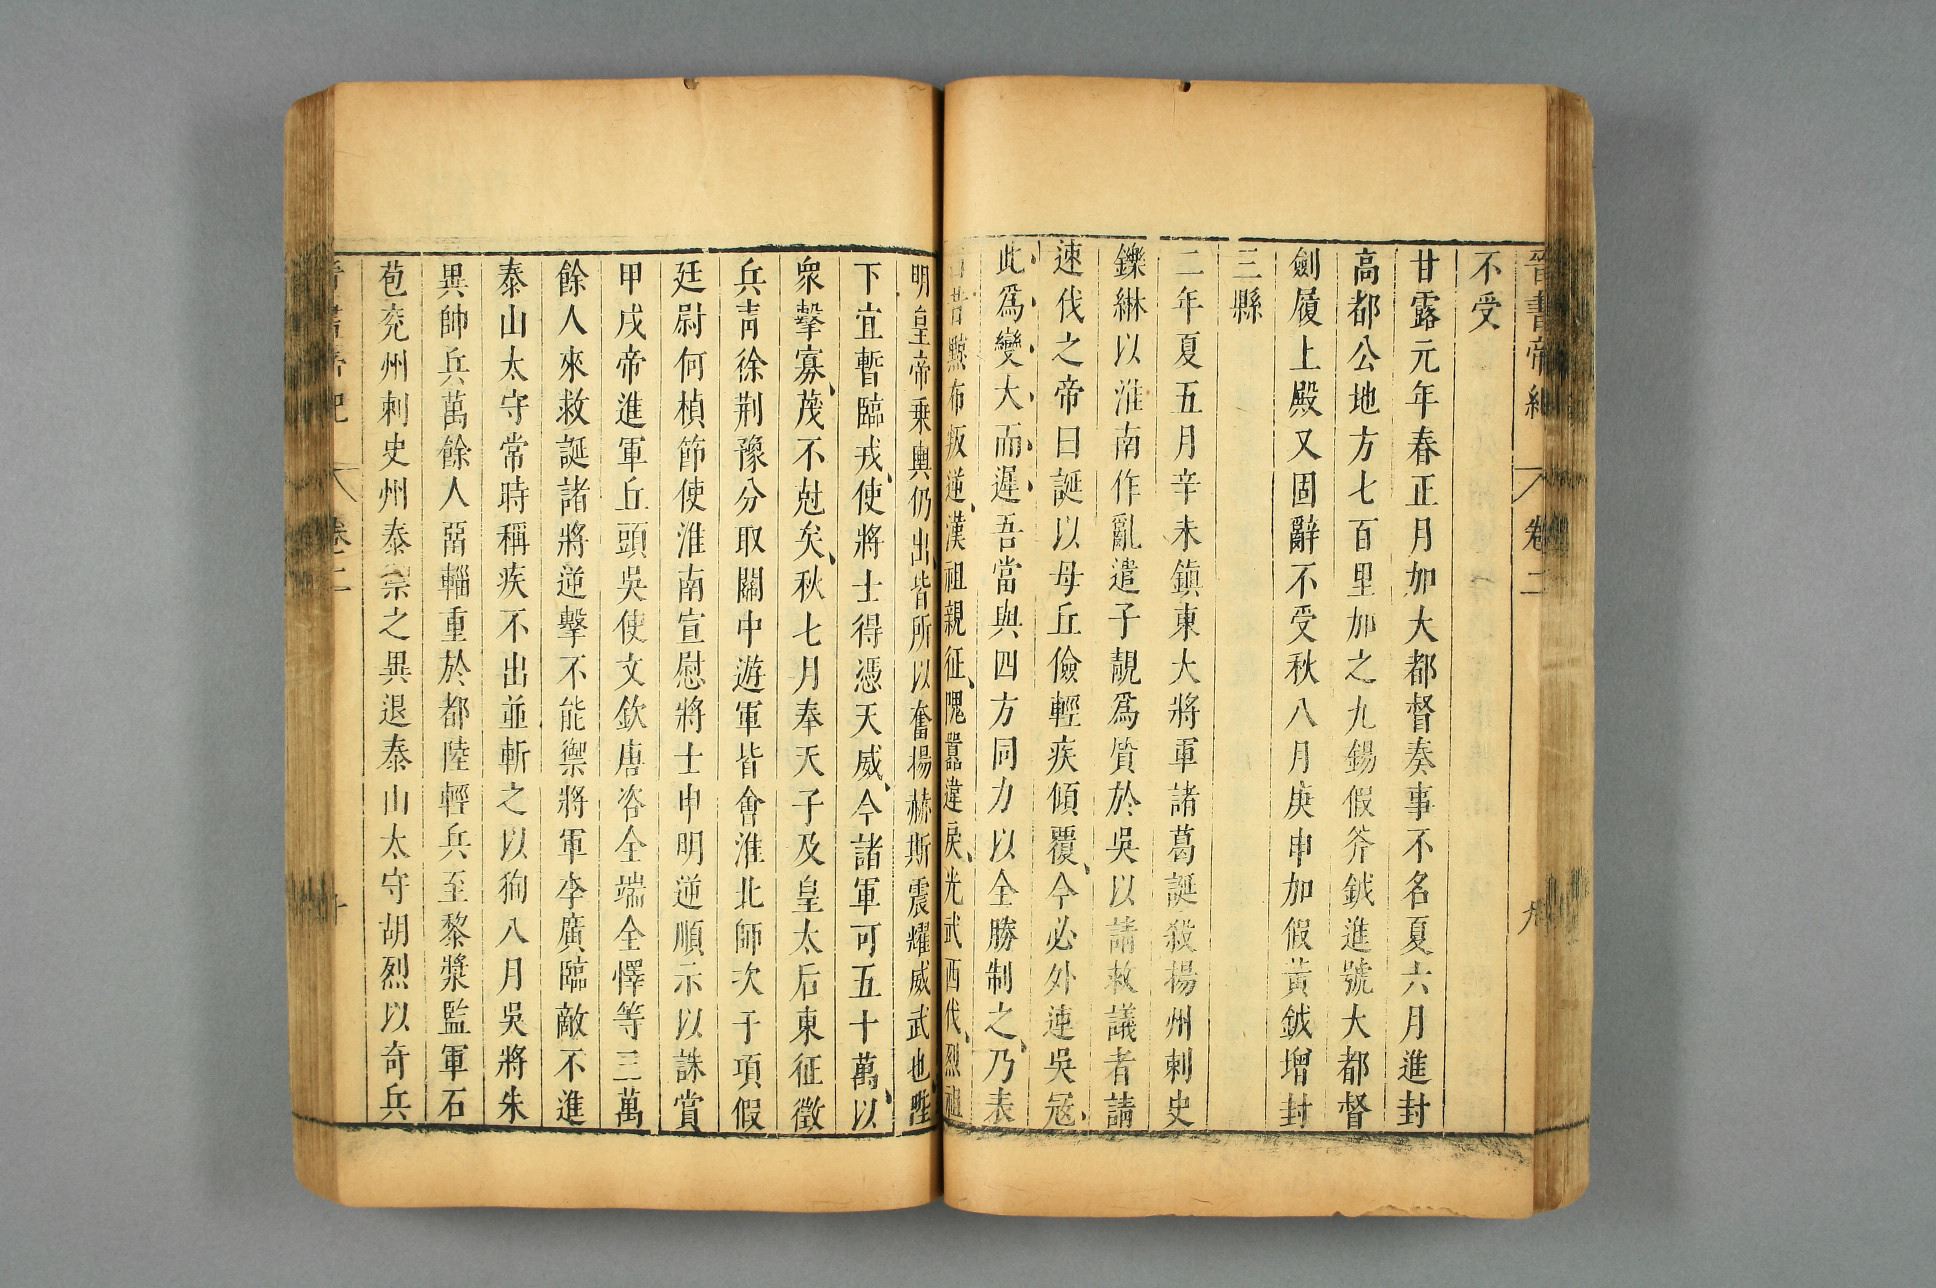 晉書帝紀 卷二 九
不受
甘露元年春正月加大都督奏事不名夏六月進封
高都公地方七百里加之九錫假斧鉞進號大都督
劍履上殿又固辭不受秋八月庚申加假黃鉞增封
三縣
二年夏五月辛未鎮東大將軍諸葛誕殺揚州刺史
樂綝以淮南作亂遣子靚爲質於吳以請救議者請
速伐之帝曰誕以毋丘儉輕疾傾覆今必外連吳寇
此爲變大而遲吾當與四方同力以全勝制之乃表
曰昔黥布叛逆漢祖親征隗囂違戾光武西伐烈祖
明皇帝乗輿仍出皆所以奮揚赫斯震耀威武也陛
下宜暫臨戎使將士得憑天威今諸軍可五十萬以
衆擊寡茂不尅矣秋七月奉天子及皇太后東征徵
兵青徐荆豫分取關中遊軍皆會淮北師次于項假
廷尉何楨節使淮南宣慰將士申明逆順示以誅賞
甲戌帝進軍丘頭吳使文欽唐咨全端全懌等三萬
餘人來救誕諸將逆擊不能禦將軍李廣臨敵不進
泰山太守常時稱疾不出並斬之以狥八月吳將朱
異帥兵萬餘人畱輜重於都陸輕兵至黎漿監軍石
苞兖州刺史州泰禦之異退泰山太守胡烈以奇兵
晉書帝紀 卷二 十